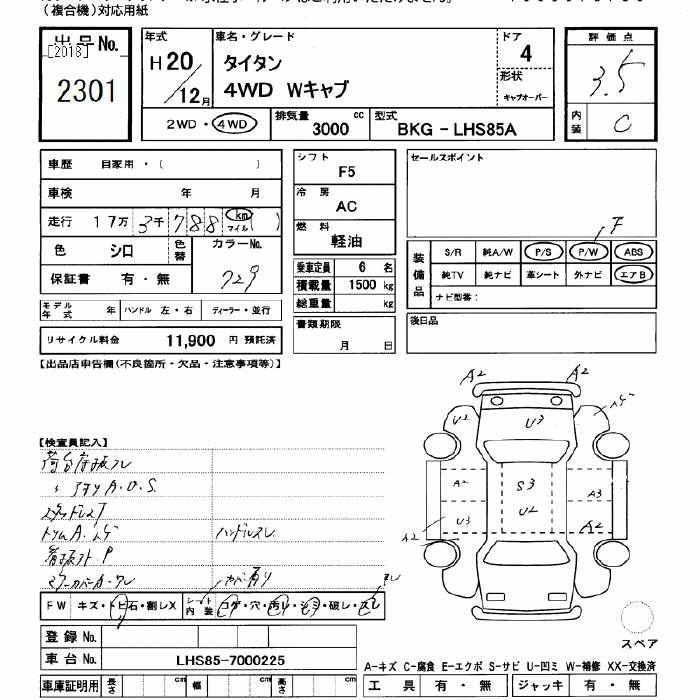 （複合機）対応用紙
出品No.
[2018]
2301
年式
H20／12月
車名・グレード
タイタン
4WD Wキャブ
ドア
4
形状
キャブオーバー
評価点
3.5
内装
C
2WD・4WD
排気量
3000 cc
型式
BKG - LHS85A
車歴 自家用・（ ）
車検 年 月
走行 17万3千788 km マイル ( )
色 シロ
色替
カラーNo.
729
保証書 有・無
モデル年式 年 ハンドル 左・右 ディーラー・並行
リサイクル料金 11,900 円 預託済
シフト
F5
冷房
AC
燃料
軽油
乗車定員 6 名
積載量 1500 kg
総重量 kg
書類期限
月 日
セールスポイント
F
装備品
S/R 純A/W P/S P/W ABS
純TV 純ナビ 革シート 外ナビ エアB
ナビ型番：
後日品
【出品店申告欄(不良箇所・欠品・注意事項等)】
【検査員記入】
A・O・S.
ハンドルスレ
FW キズ・トビ石・割レX
シート内装 コゲ・穴・汚レ・シミ・破レ・スレ
登録No.
車台No. LHS85-7000225
車庫証明用 長さ cm 幅 cm 高さ cm
A2 A2
U2 U3
A2 S3 A3
U3 U2 A2
A2
スペア
A-キズ C-腐食 E-エクボ S-サビ U-凹ミ W-補修 XX-交換済
工具 有・無 ジャッキ 有・無